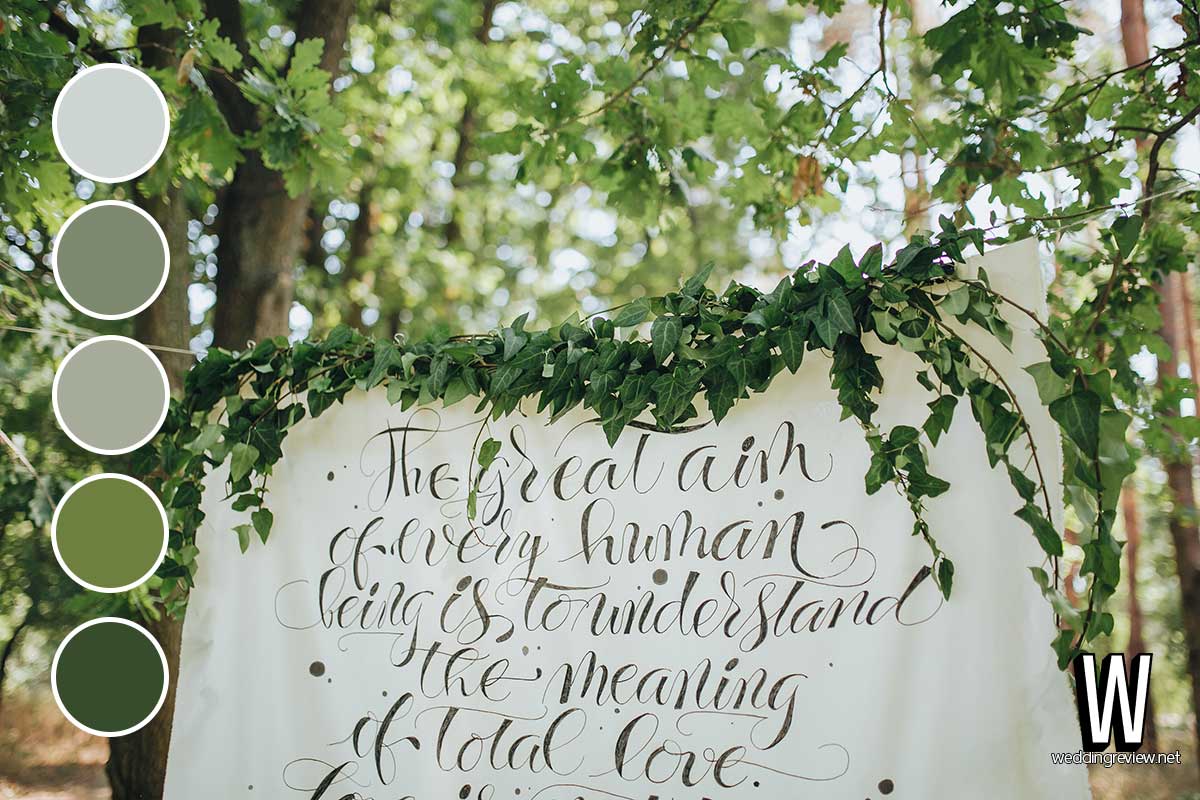 The great aim
of every human
being is to understand
the meaning
of total love.
W
weddingreview.net